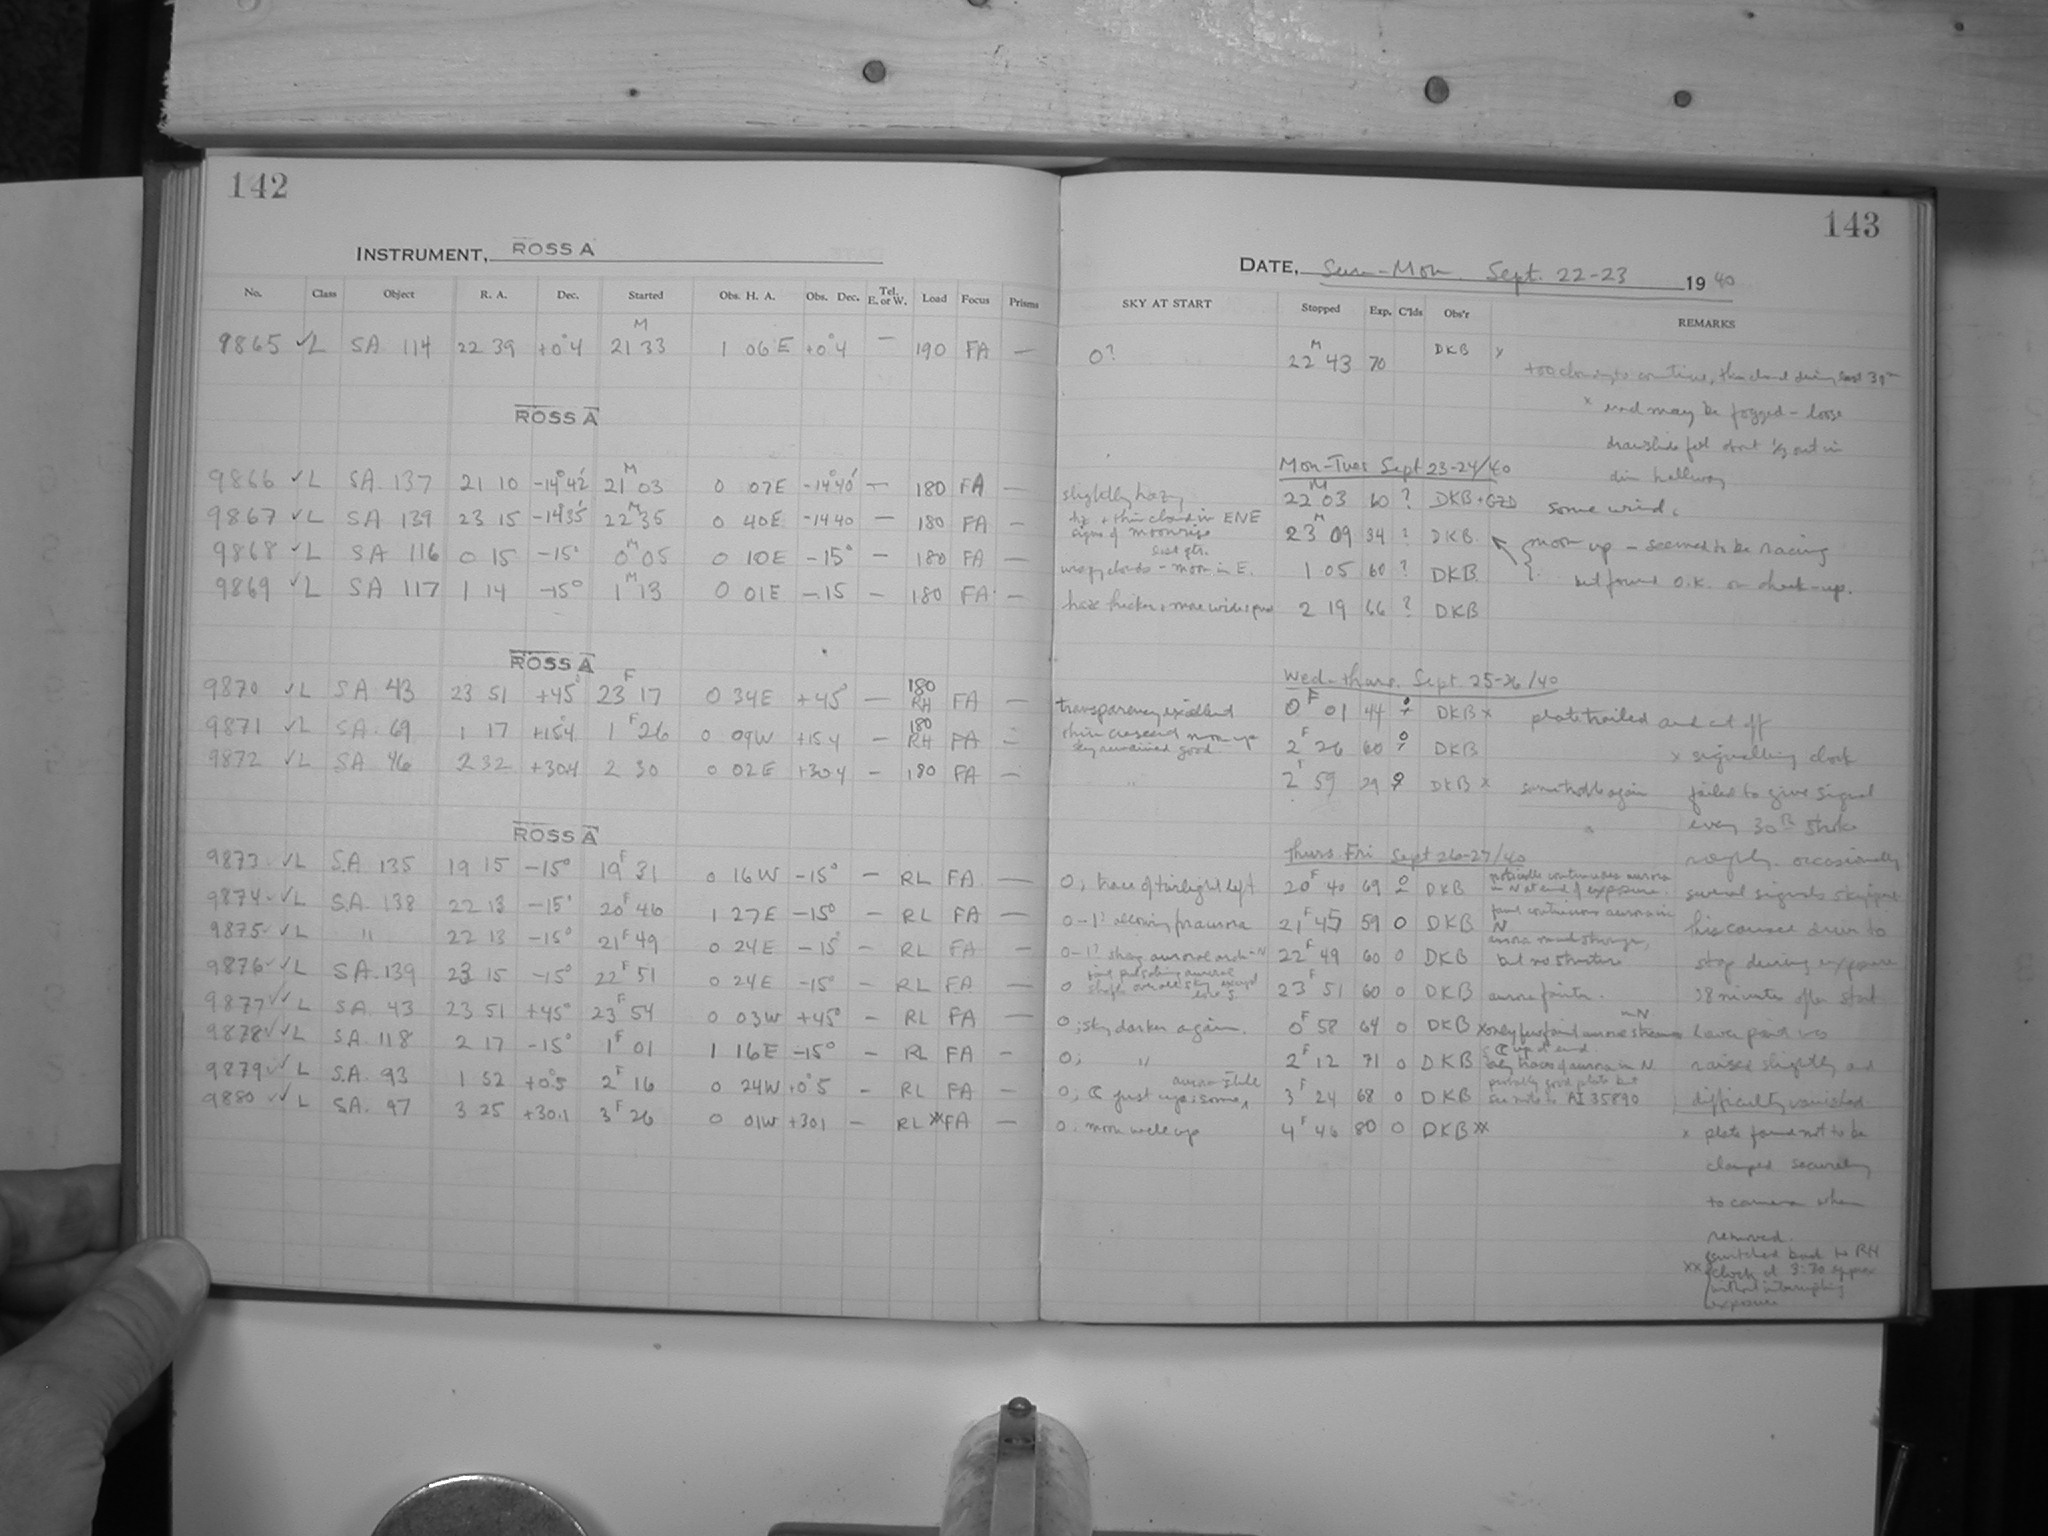 142
INSTRUMENT, ROSS A
No. Class Object R. A. Dec. Started Obs. H. A. Obs. Dec. Tel. E. or W. Load Focus Prisms
9865 ✓ L SA 114 22 39 +0°4 21 M 33 1 06 E +0°4 — 190 FA —
ROSS A
9866 ✓ L SA 137 21 10 -14°42' 21 M 03 0 07E -14°40' — 180 FA —
9867 ✓ L SA 139 23 15 -14°35' 22 M 35 0 40E -14 40 — 180 FA —
9868 ✓ L SA 116 0 15 -15° 0 M 05 0 10E -15° — 180 FA —
9869 ✓ L SA 117 1 14 -15° 1 M 13 0 01E -15 — 180 FA —
ROSS A
9870 ✓ L SA 43 23 51 +45° 23 F 17 0 34E +45° — 180 RH FA —
9871 ✓ L SA 69 1 17 +15°4 1 F 26 0 09W +15.4 — 180 RH FA —
9872 ✓ L SA 46 2 32 +30.4 2 30 0 02E +30.4 — 180 FA —
ROSS A
9873 ✓ L SA 135 19 15 -15° 19 F 31 0 16W -15° — RL FA —
9874 ✓ L SA 138 22 13 -15° 20 F 46 1 27E -15° — RL FA —
9875 ✓ L " 22 13 -15° 21 F 49 0 24E -15° — RL FA —
9876 ✓✓ L SA 139 23 15 -15° 22 F 51 0 24E -15° — RL FA —
9877 ✓✓ L SA 43 23 51 +45° 23 F 54 0 03W +45° — RL FA —
9878 ✓✓ L SA 118 2 17 -15° 1 F 01 1 16E -15° — RL FA —
9879 ✓✓ L SA 93 1 52 +0°5 2 F 16 0 24W +0°5 — RL FA —
9880 ✓✓ L SA 97 3 25 +30.1 3 F 26 0 01W +30.1 — RL xx FA —
143
DATE, Sun-Mon Sept. 22-23 1940
SKY AT START Stopped Exp. C'lds Obs'r REMARKS
0? 22 M 43 70 DKB x
too cloudy to continue, thin cloud during last 30m
x end may be fogged - loose
drawslide fell about 1/3 out in
dim hallway
Mon-Tues Sept 23-24/40
slightly hazy 22 M 03 60 ? DKB+GZD some wind.
thin cloud in ENE
signs of moonrise 23 M 09 34 ? DKB moon up - seemed to be racing
last qtr.
wispy clouds - moon in E. 1 05 60 ? DKB but found O.K. on check-up.
haze thicker + more widespread 2 19 66 ? DKB
Wed-thurs. Sept. 25-26/40
transparency excellent 0 F 01 44 DKB x plate trailed and cut off
thin crescent moon up
sky remained good 2 F 26 60 DKB x signalling clock
" 2 F 59 29 DKB x same trouble again failed to give signal
every 30th stroke
Thurs Fri Sept 26-27/40 roughly. occasionally
0; trace of twilight left 20 F 40 69 DKB noticeable continuous aurora
in N at end of exposure. several signals skipped
0-1? allowing for aurora 21 F 45 59 0 DKB faint continuous aurora in
N this caused drive to
0-1? strong auroral arch - N 22 F 49 60 0 DKB aurora much stronger,
but no structure stop during exposure
0 faint pulsating auroral
shafts over all sky except
low S 23 F 51 60 0 DKB aurora fainter. 38 minutes after start
0; sky darker again. 0 F 58 64 0 DKB x only few faint aurora streamers in N
0; " 2 F 12 71 0 DKB ☾ up at end.
only traces of aurora in N raised slightly and
0; ☾ just up; some aurora still 3 F 24 68 0 DKB probably good plate but
see note to AI 35890 difficulty vanished
0; moon well up 4 F 46 80 0 DKB xx
x plate found not to be
clamped securely
to camera when
removed.
xx switched back to RH
clock at 3:30 approx
without interrupting
exposure